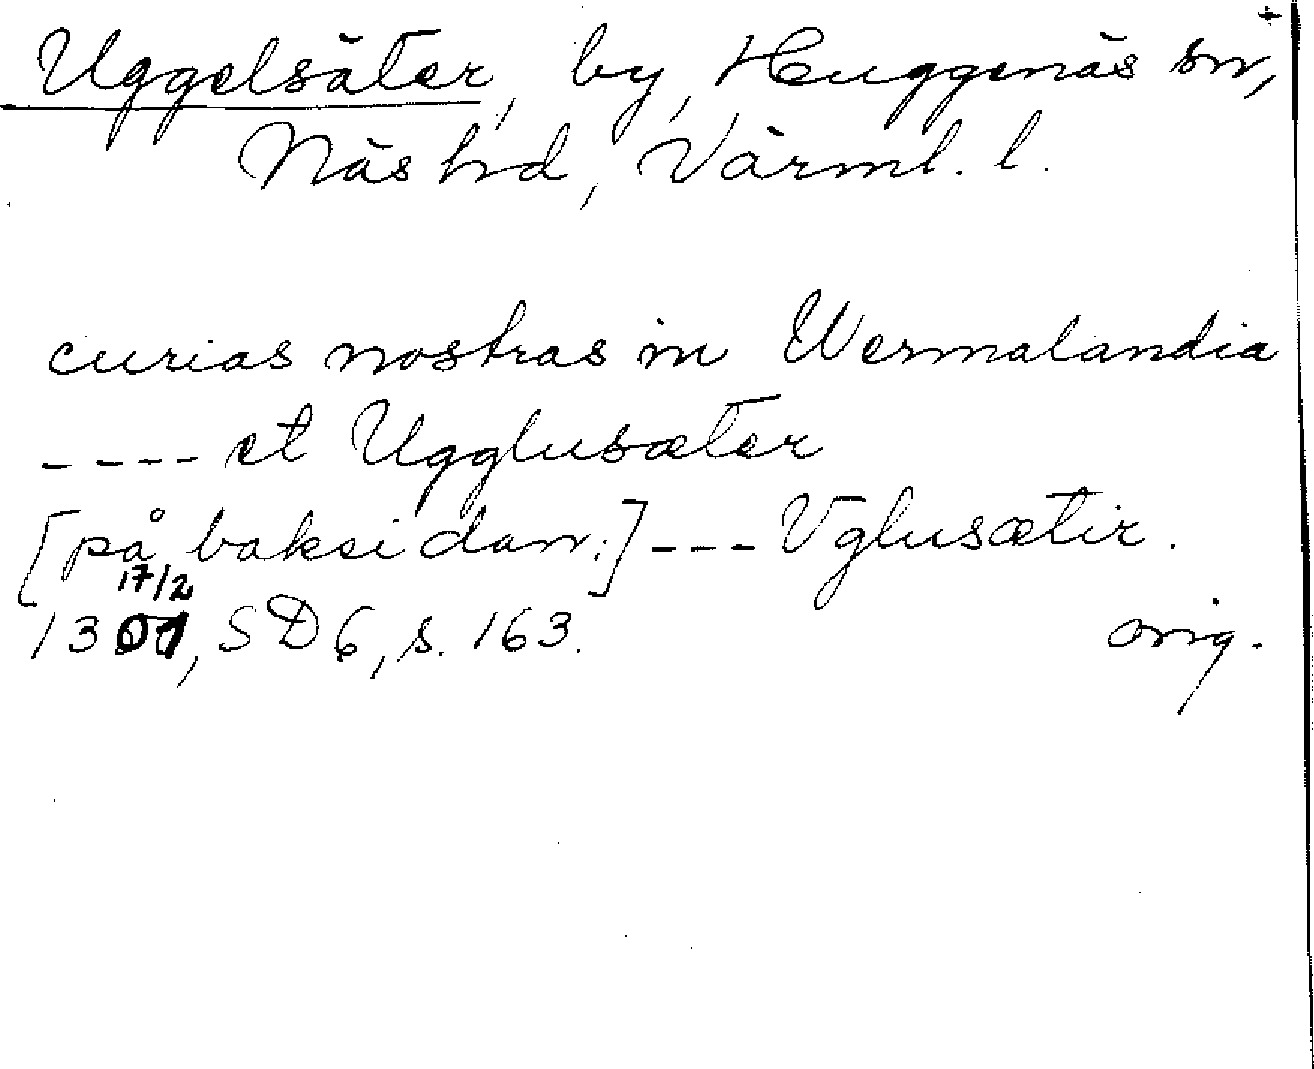 Uggelsäter, by, Huggenäs sn,
Näs hd, Värml. l.
curias nostras in Wermalandia
---- et Ugglusæter
[på baksidan:] --- Vglusætir.
17/2
1301, SD 6, s. 163. orig.